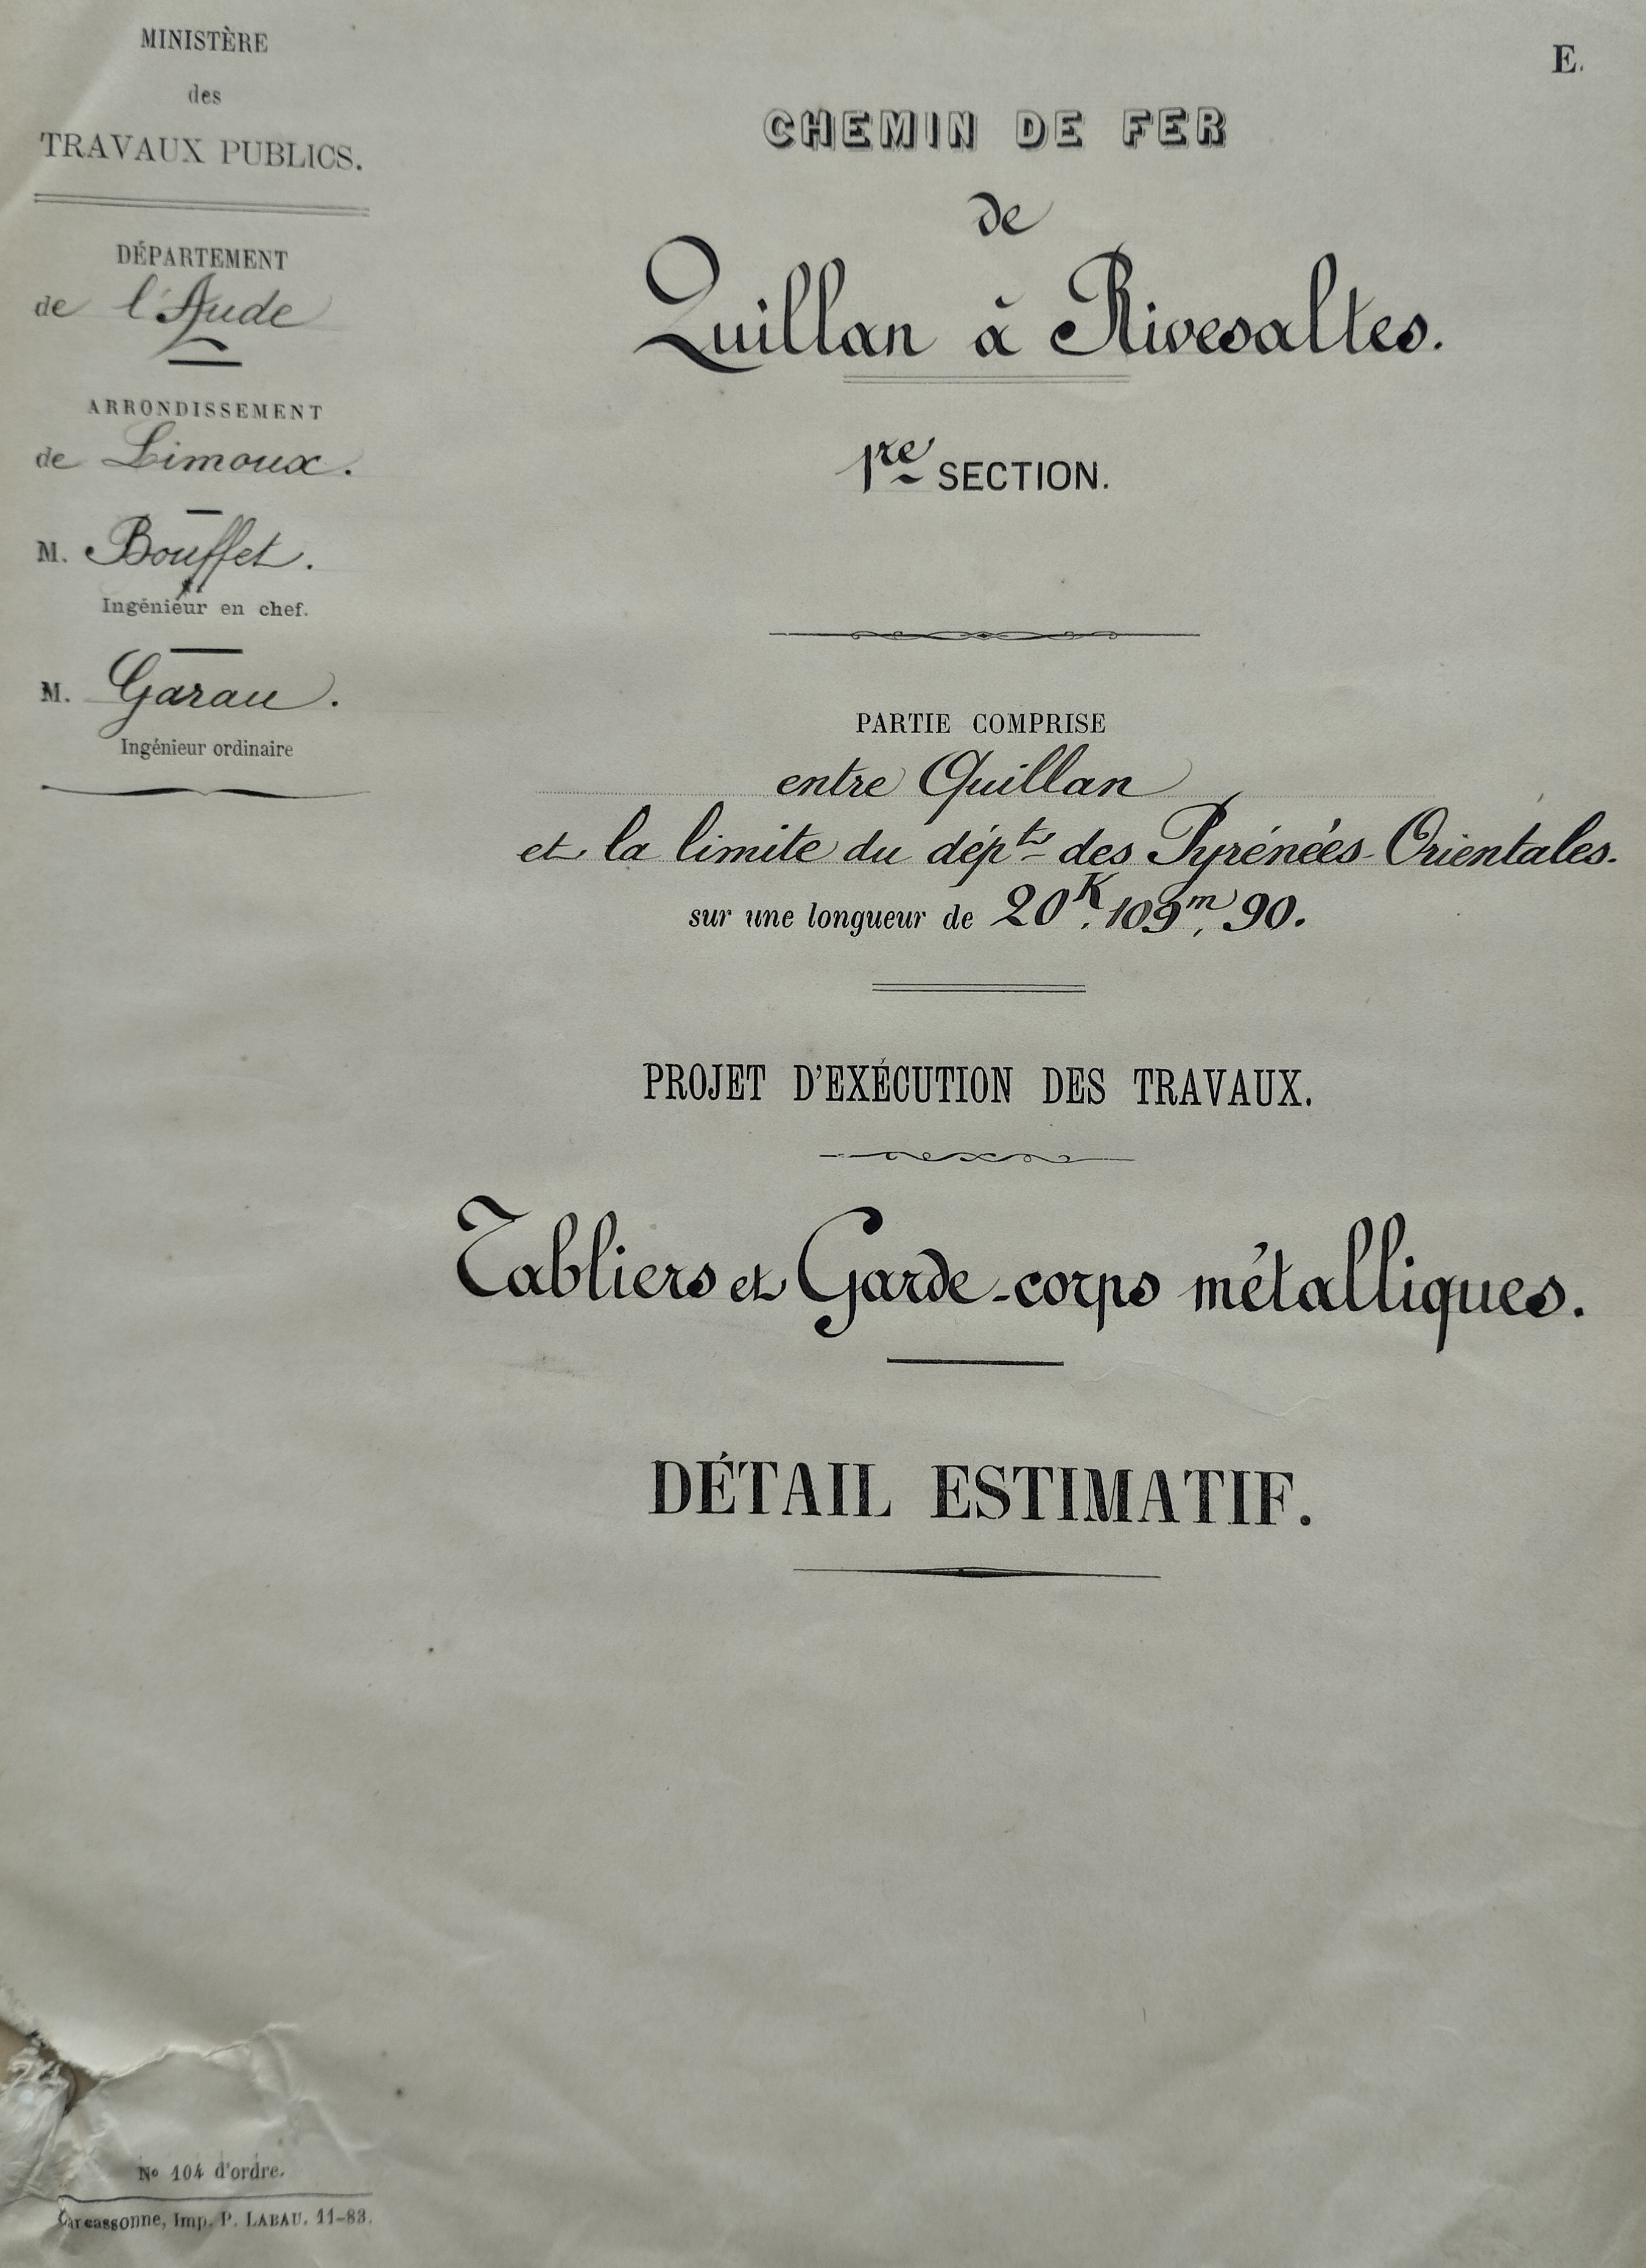 MINISTÈRE
des
TRAVAUX PUBLICS.
DÉPARTEMENT
de l'Aude
ARRONDISSEMENT
de Limoux.
M. Bouffet.
Ingénieur en chef.
M. Garau.
Ingénieur ordinaire
E.
CHEMIN DE FER
de
Quillan à Rivesaltes.
1re SECTION.
PARTIE COMPRISE
entre Quillan
et la limite du dépt des Pyrénées-Orientales.
sur une longueur de 20K,109m,90.
PROJET D'EXÉCUTION DES TRAVAUX.
Tabliers et Garde-corps métalliques.
DÉTAIL ESTIMATIF.
No 104 d'ordre.
Carcassonne, Imp. P. LABAU. 11-83.